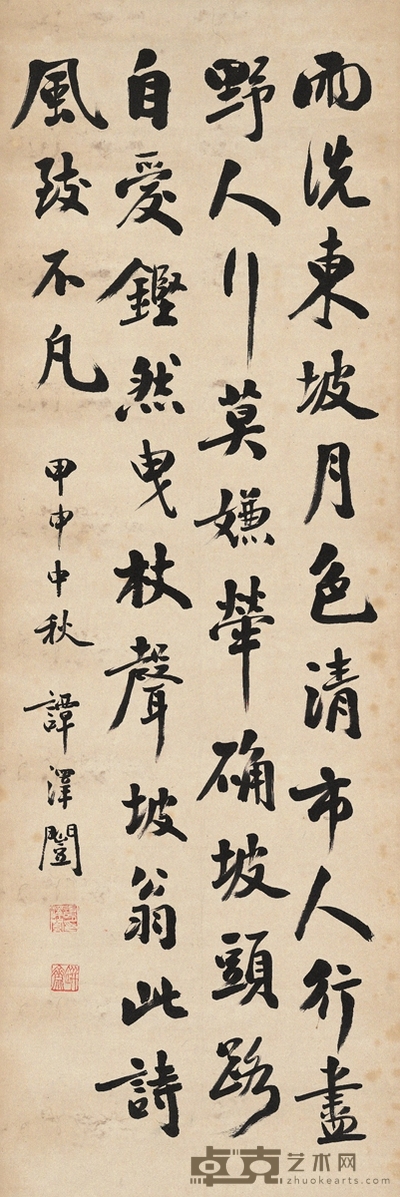 雨洗東坡月色清市人行盡
野人行莫嫌犖确坡頭路
自愛鏗然曳杖聲坡翁此詩
風致不凡
甲申中秋 譚澤闓
卓克艺术网
zhuokearts.com